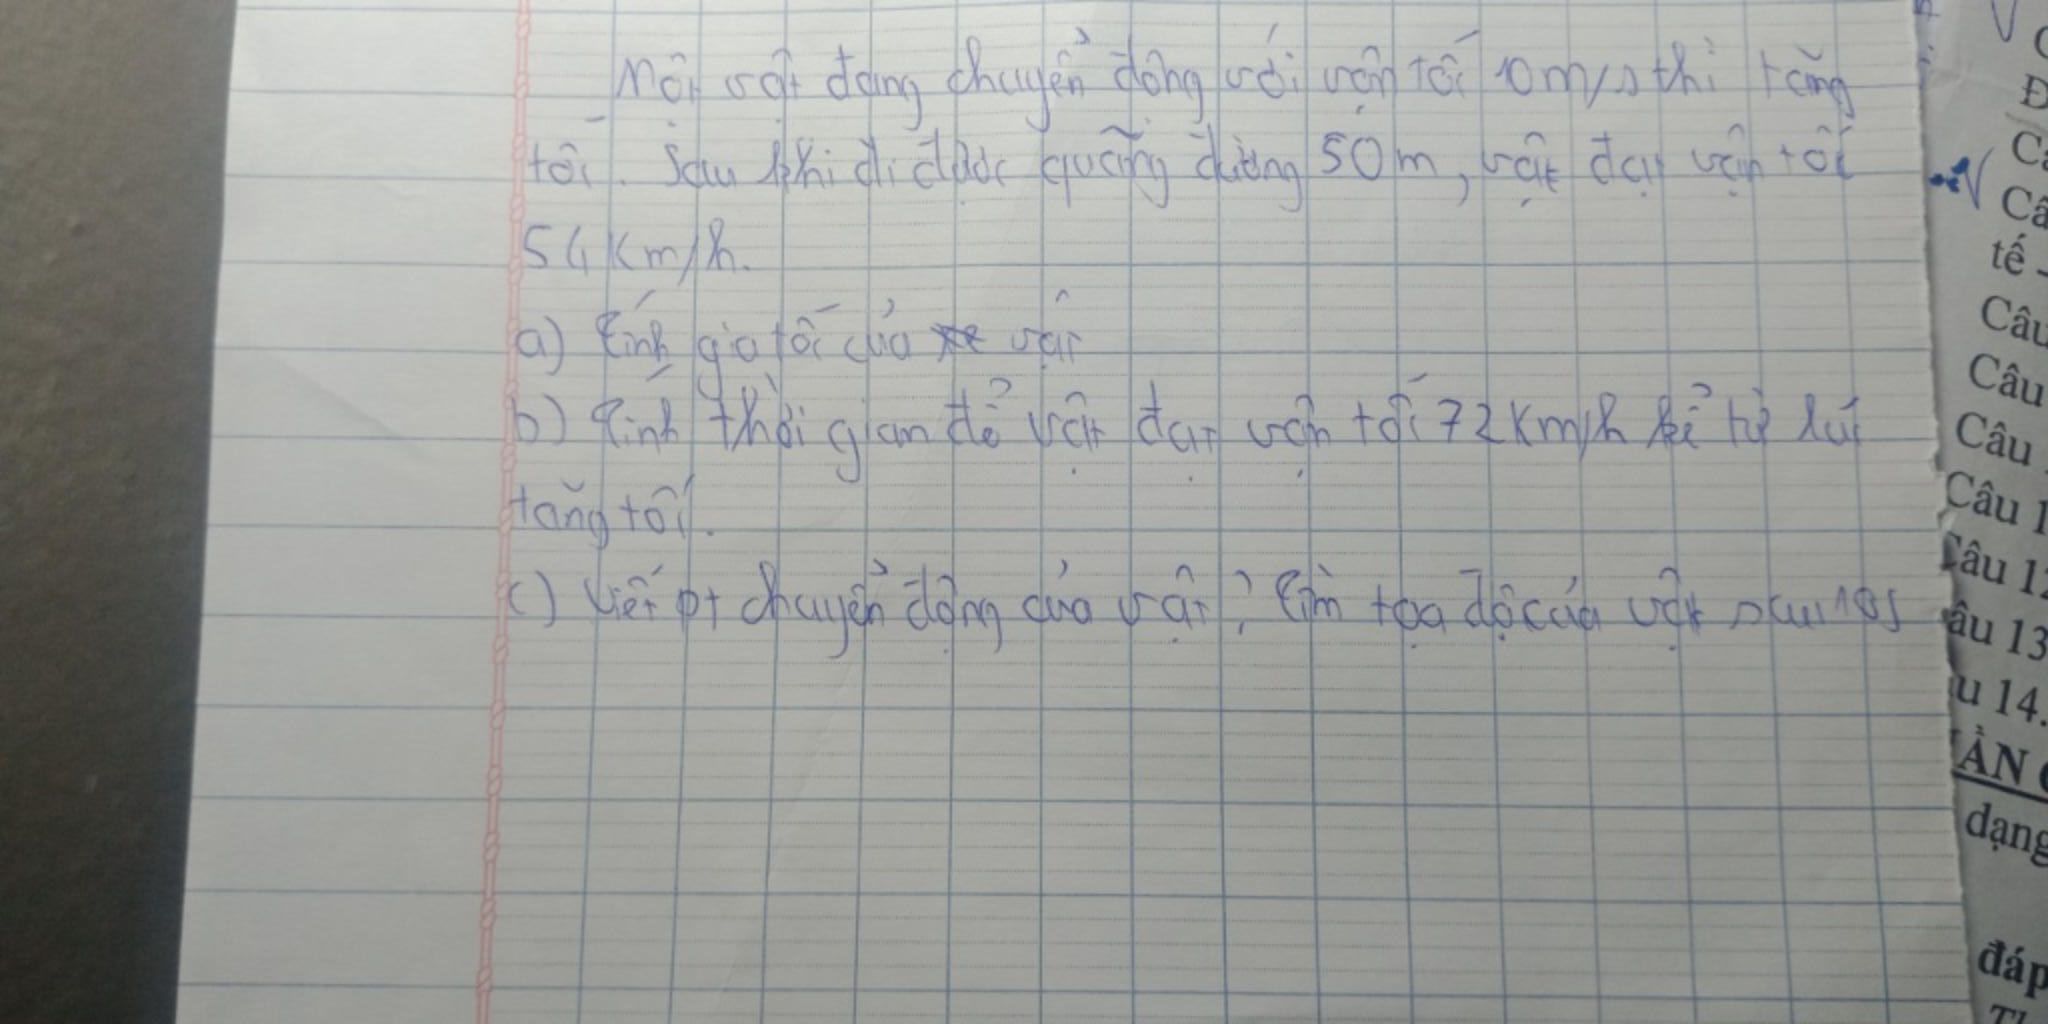 Một vật đang chuyển động với vận tốc 10m/s thì tăng
tốc. Sau khi đi được quãng đường 50m, vật đạt vận tốc
54km/h.
a) Tính gia tốc của vật
b) Tính thời gian để vật đạt vận tốc 72km/h kể từ lúc
tăng tốc.
c) Viết pt chuyển động của vật? Tìm tọa độ của vật sau 10s
Đ
tế -
Câu
Câu
Câu
Câu 1
Câu 12
âu 13
u 14.
dạng
đáp